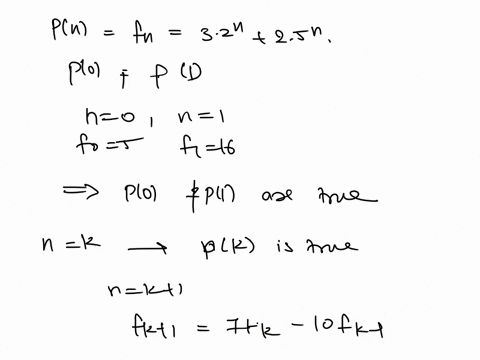 P(n) = fn = 3.2^n + 2.5^n.
P(0) & P(1)
n=0, n=1
f0=5 f1=16
⇒ P(0) & P(1) are true
n=k → p(k) is true
n=k+1
fk+1 = 7fk − 10fk-1